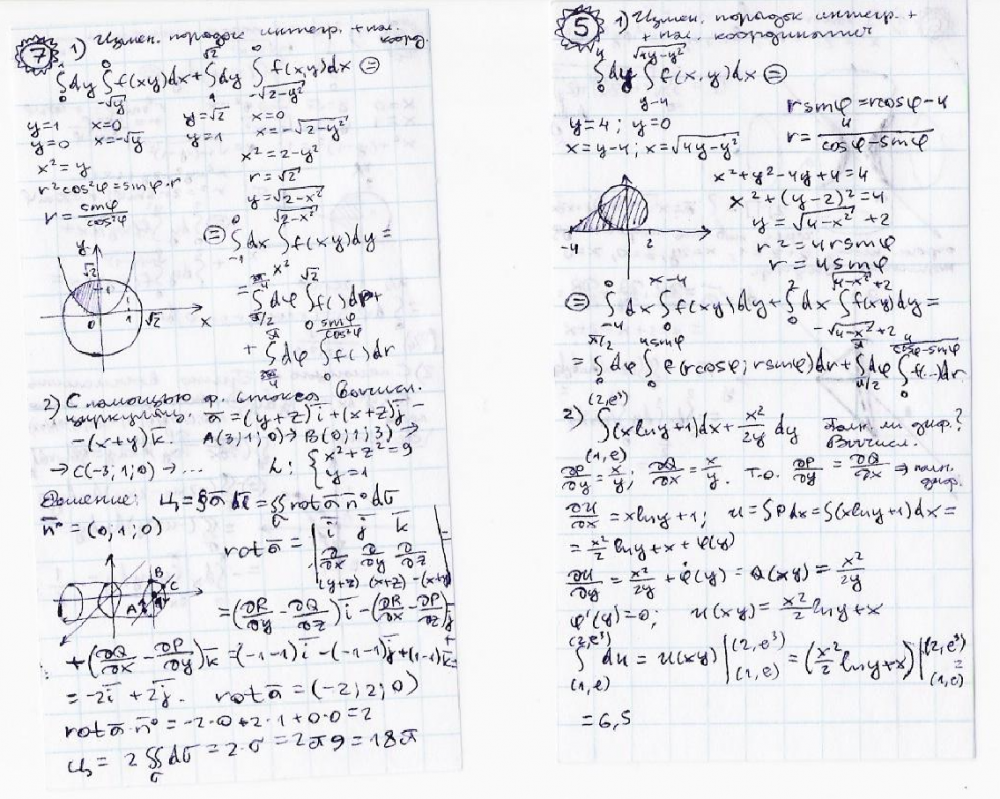 7 1) Измен. порядок интегр. + пол. коорд.
∫₀¹ dy ∫_{-√y}^0 f(xy)dx + ∫₁^{√2} dy ∫_{-√(2-y²)}^0 f(x,y)dx =
y=1 x=0 y=√2 x=0
y=0 x=-√y y=1 x=-√(2-y²)
x²=y x²=2-y²
r²cos²φ=sinφ·r r=√2
r = sinφ/cos²φ y=√(2-x²)
= ∫_{-1}^0 dx ∫_{x²}^{√(2-x²)} f(xy)dy =
y √2 1 0 1 √2 x
= ∫_{π/2}^{3π/4} dφ ∫₀^{√2} f()dr +
+ ∫_{3π/4}^{π} dφ ∫₀^{sinφ/cos²φ} f()dr
2) С помощью ф. Стокса вычисл.
циркуляц. ā = (y+z)ī+(x+z)j̄ -
-(x+y)k̄ A(3;1;0)→B(0;1;3)→
→C(-3;1;0)→... L: { x²+z²=9
y=1
Решение: Ц = ∮ā dl̄ = ∬_σ rot ā n̄° dσ
n̄° = (0;1;0)
rot ā = | ī j̄ k̄
∂/∂x ∂/∂y ∂/∂z
(y+z) (x+z) -(x+y) |
A B C
= (∂R/∂y - ∂Q/∂z) ī - (∂R/∂x - ∂P/∂z) j̄ +
+ (∂Q/∂x - ∂P/∂y) k̄ = (-1-1)ī - (-1-1)j̄ + (1-1)k̄ =
= -2ī + 2j̄. rot ā = (-2; 2; 0)
rot ā · n̄° = -2·0+2·1+0·0=2
Ц = 2∬_σ dσ = 2·σ = 2π9 = 18π
5 1) Измен. порядок интегр. +
+ пол. координатич
∫₀⁴ dy ∫_{y-4}^{√(4y-y²)} f(x,y)dx =
y=4; y=0 r sinφ = r cosφ - 4
x=y-4; x=√(4y-y²) r = 4/(cosφ-sinφ)
x²+y²-4y+4=4
x²+(y-2)²=4
y=√(4-x²)+2
r²=4r sinφ
r = 4 sinφ
-4 2
= ∫_{-4}^0 dx ∫₀^{x-4} f(xy)dy + ∫₀² dx ∫_{-√(4-x²)+2}^{√(4-x²)+2} f(xy)dy =
= ∫₀^{π/2} dφ ∫₀^{4sinφ} f(rcosφ; rsinφ)dr + ∫_{π/2}^{π} dφ ∫₀^{4/(cosφ-sinφ)} f(...)dr
2) ∫_{(1,e)}^{(2,e³)} (x ln y+1)dx + x²/2y dy Полн. ли диф.?
Вычисл.
∂P/∂y = x/y; ∂Q/∂x = x/y. т.о. ∂P/∂y = ∂Q/∂x ⇒ полн. диф.
∂u/∂x = x ln y+1; u=∫Pdx=∫(x ln y+1)dx=
= x²/2 ln y + x + φ(y)
∂u/∂y = x²/2y + φ'(y) = Q(xy) = x²/2y
φ'(y)=0; u(xy) = x²/2 ln y+x
∫_{(1,e)}^{(2,e³)} du = u(xy) |_{(1,e)}^{(2,e³)} = (x²/2 ln y+x) |_{(1,e)}^{(2,e³)} =
= 6,5